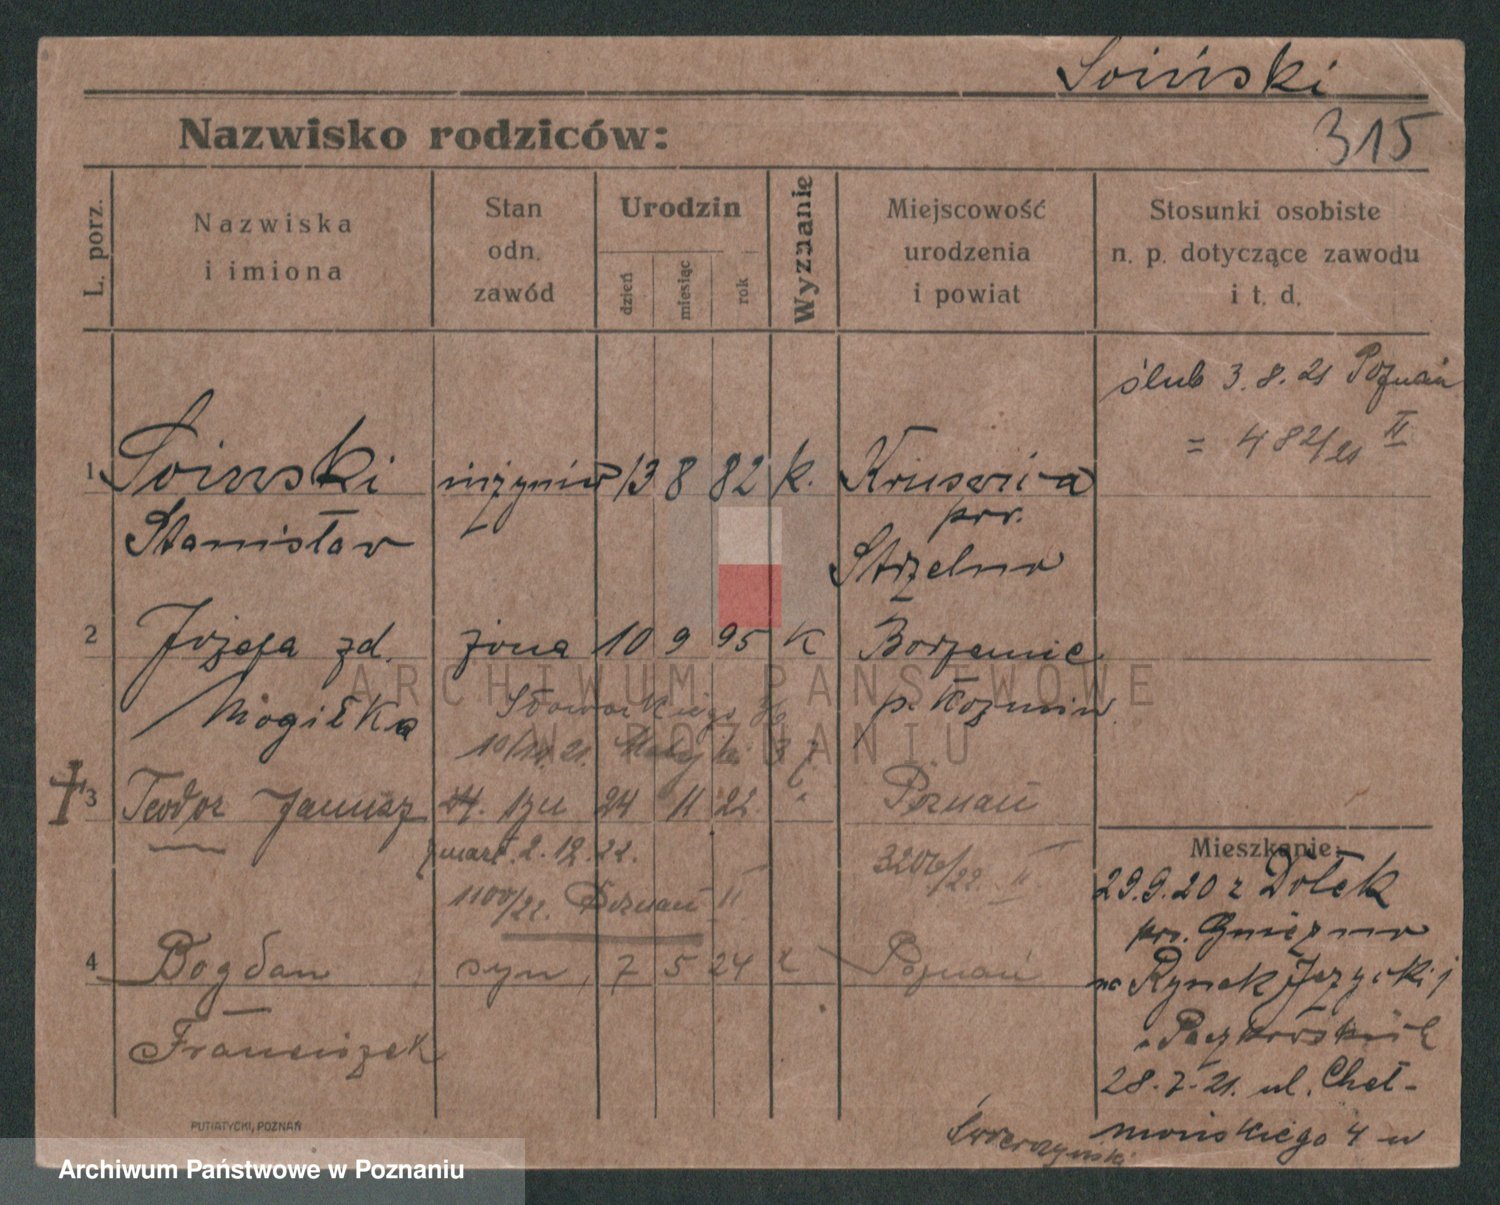 Soiński
Nazwisko rodziców:
315
L. porz.
Nazwiska
i imiona
Stan
odn.
zawód
Urodzin
dzień
miesiąc
rok
Wyznanie
Miejscowość
urodzenia
i powiat
Stosunki osobiste
n. p. dotyczące zawodu
i t. d.
ślub 3.8.21 Poznań
= 482/21 II
1 Soiński inżynier 13 8 82 k. Kruszwica
pow.
Stanisław Strzelno
2 Józefa zd. żona 10 9 95 k
Mogiłka p. Koźmin
Słowackiego
10/11.21.
3 Teodor Janusz 24 11 22. Poznań
zmarł. 2.12.22. 3206/22. II
1100/22. Poznań II
4 Bogdan syn 7 5 24 Poznań
Franciszek
Mieszkanie:
29.9.20 z
pow. Gniezno
na Rynek Jeżycki
28.7.21. ul. Cheł-
mońskiego 4 u
PUTIATYCKI, POZNAŃ
ARCHIWUM PAŃSTWOWE
W POZNANIU
Archiwum Państwowe w Poznaniu